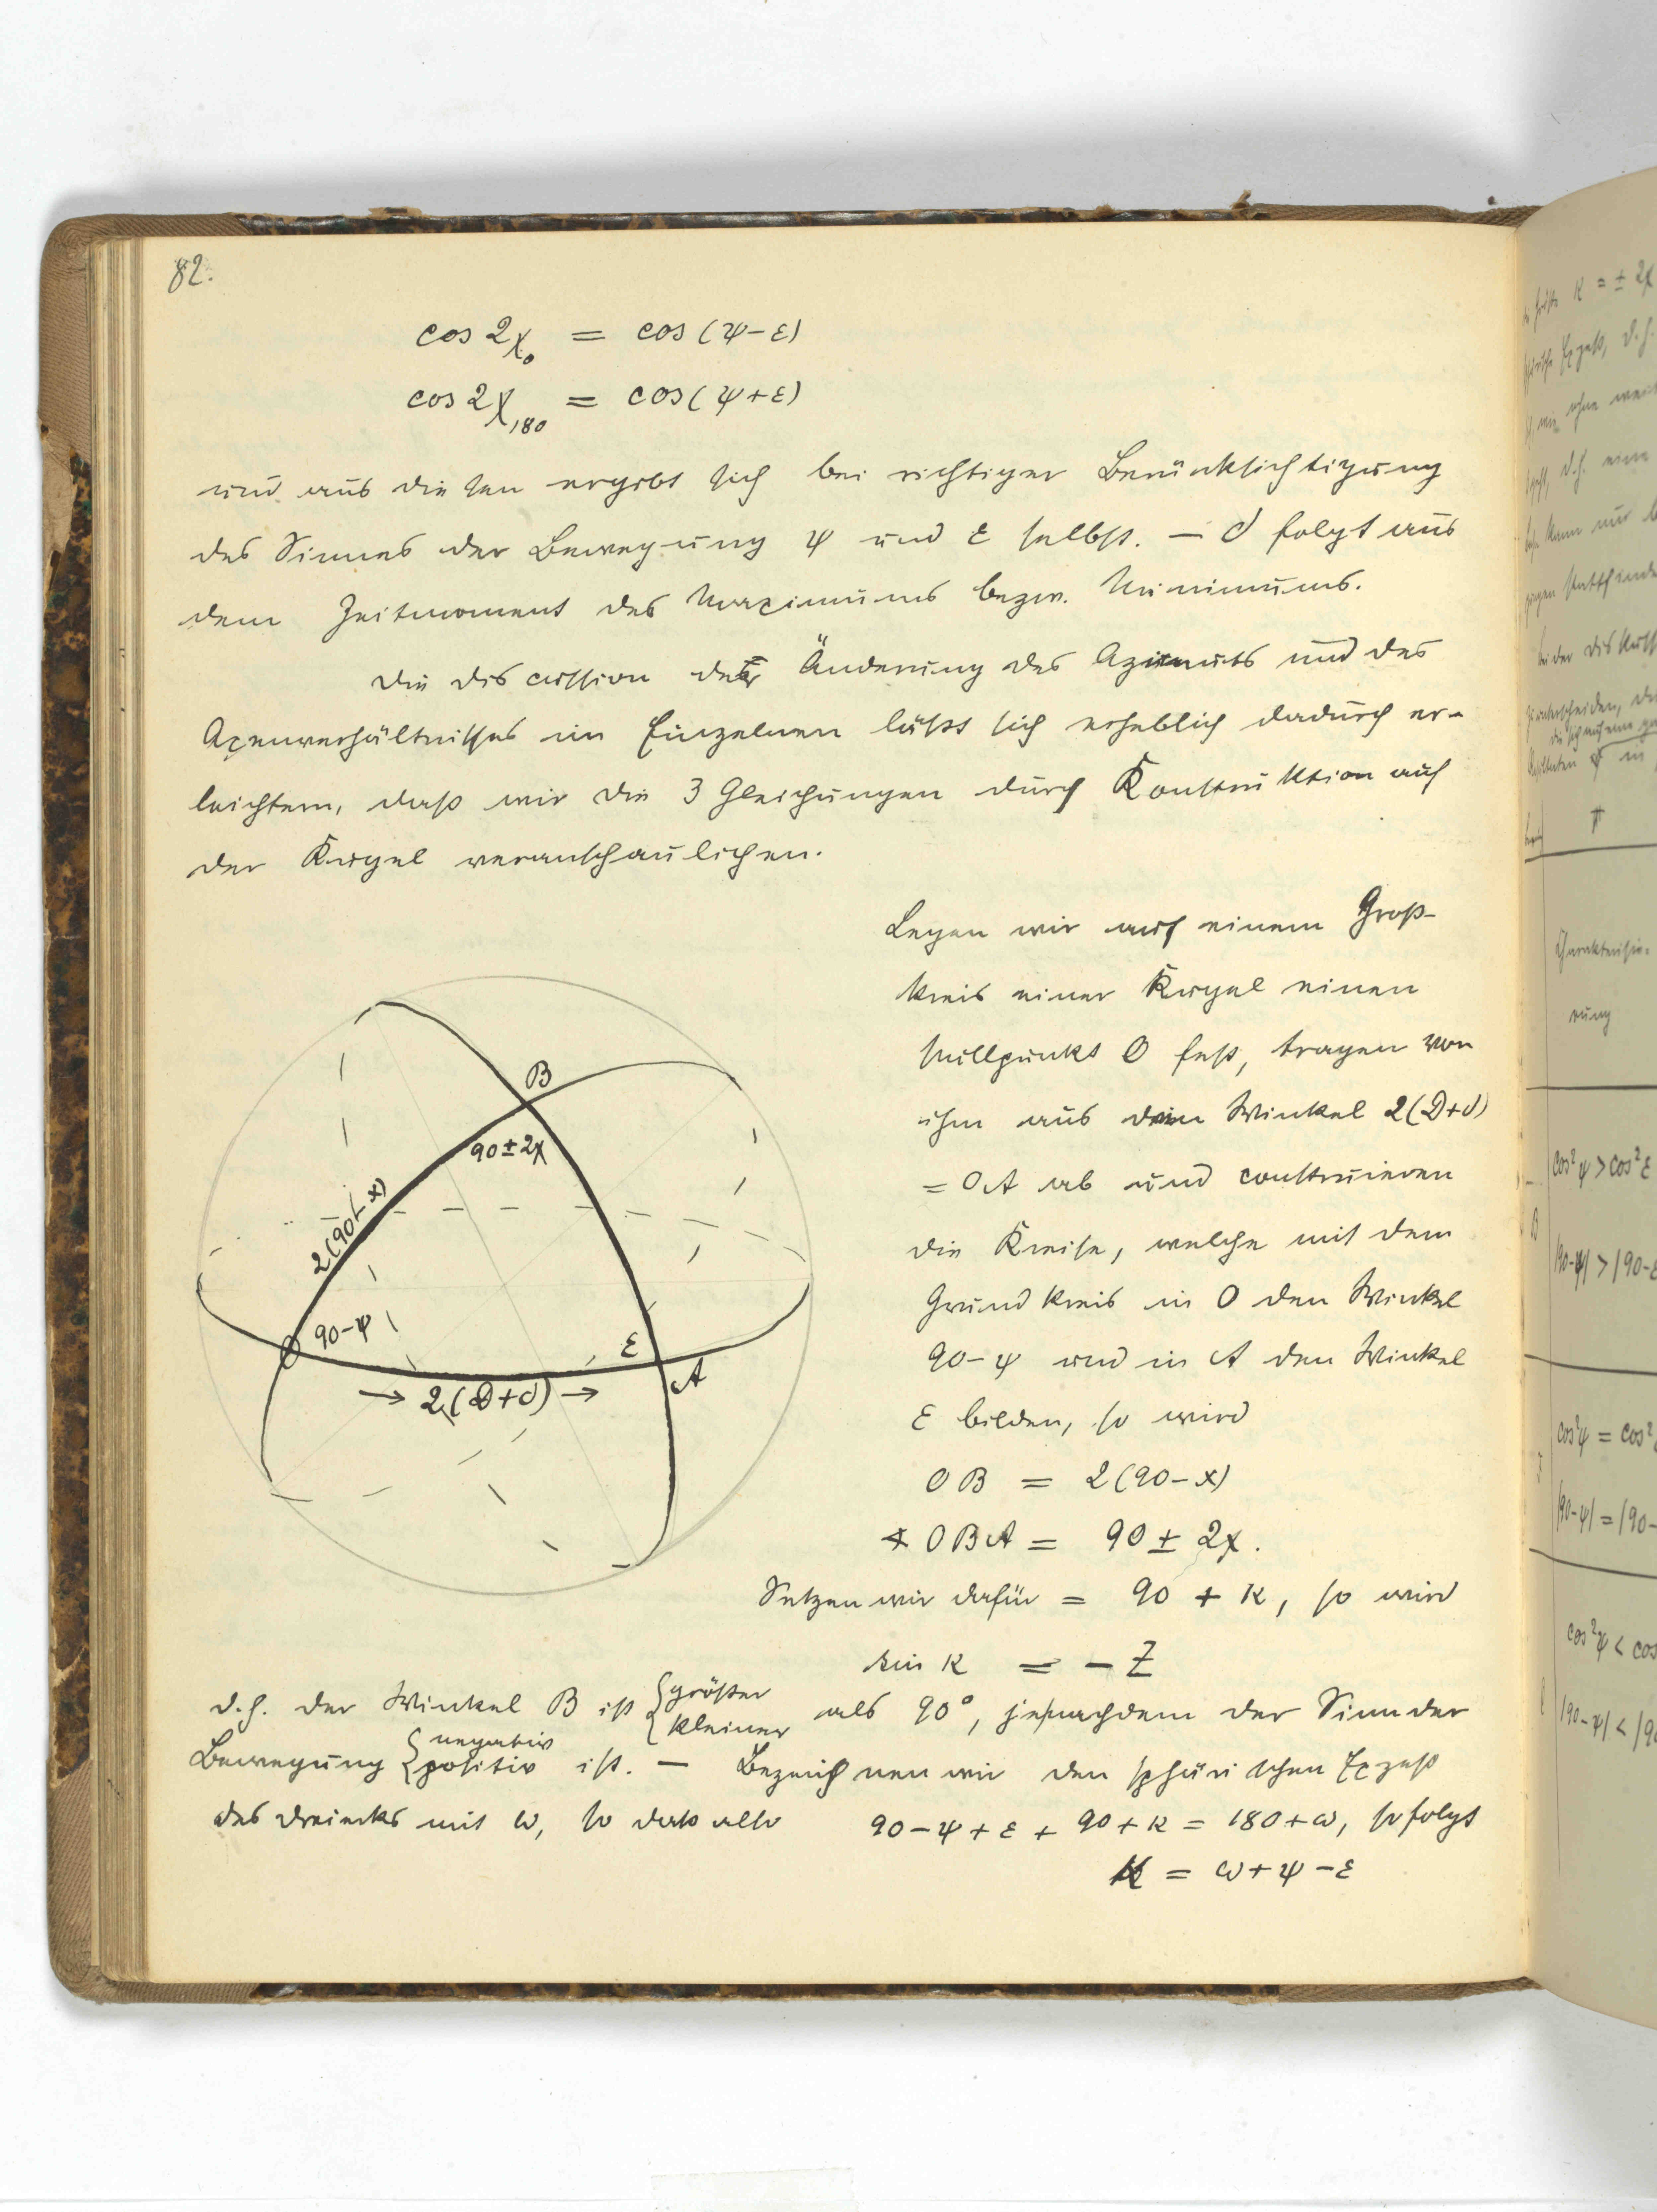 82.
cos 2χ₀ = cos (ψ-ε)
cos 2χ₁₈₀ = cos (ψ+ε)
und aus diesen ergibt sich bei richtiger Berücksichtigung
des Sinnes der Bewegung ψ und ε selbst. — δ folgt aus
dem Zeitmoment des Maximums bezw. Minimums.
Die Discussion der Änderung des Azimuts und des
Axenverhältnisses im Einzelnen läßt sich erheblich dadurch er-
leichtern, daß wir die 3 Gleichungen durch Konstruktion auf
der Kugel veranschaulichen.
Legen wir auf einem Groß-
kreis einer Kugel einen
Nullpunkt O fest, tragen von
ihm aus den Winkel 2(D+δ)
= OA ab und construieren
die Kreise, welche mit dem
Grundkreis in O den Winkel
90-ψ und in A den Winkel
ε bilden, so wird
OB = 2(90-x)
∢ OBA = 90 ± 2χ.
Setzen wir dafür = 90 + κ, so wird
sin κ = - Z
B
90±2χ
2(90-x)
O
90-ψ
ε
A
→ 2(D+δ) →
d.h. der Winkel B ist {größer kleiner als 90°, jenachdem der Sinn der
Bewegung {negativ positiv ist. — Bezeichnen wir den sphärischen Exzeß
des Dreiecks mit ω, so dass also 90-ψ+ε+90+κ = 180+ω, so folgt
κ = ω+ψ-ε
κ = ± 2χ
d.h.
ohne
d.h. eine
kann nur
stattfinde
bei der Diskuss
zu unterscheiden,
in
Charakterisie-
rung
cos²ψ > cos²ε
|90-ψ| > |90-ε
cos²ψ = cos²
|90-ψ| = |90-
cos²ψ < cos
|90-ψ| < |90